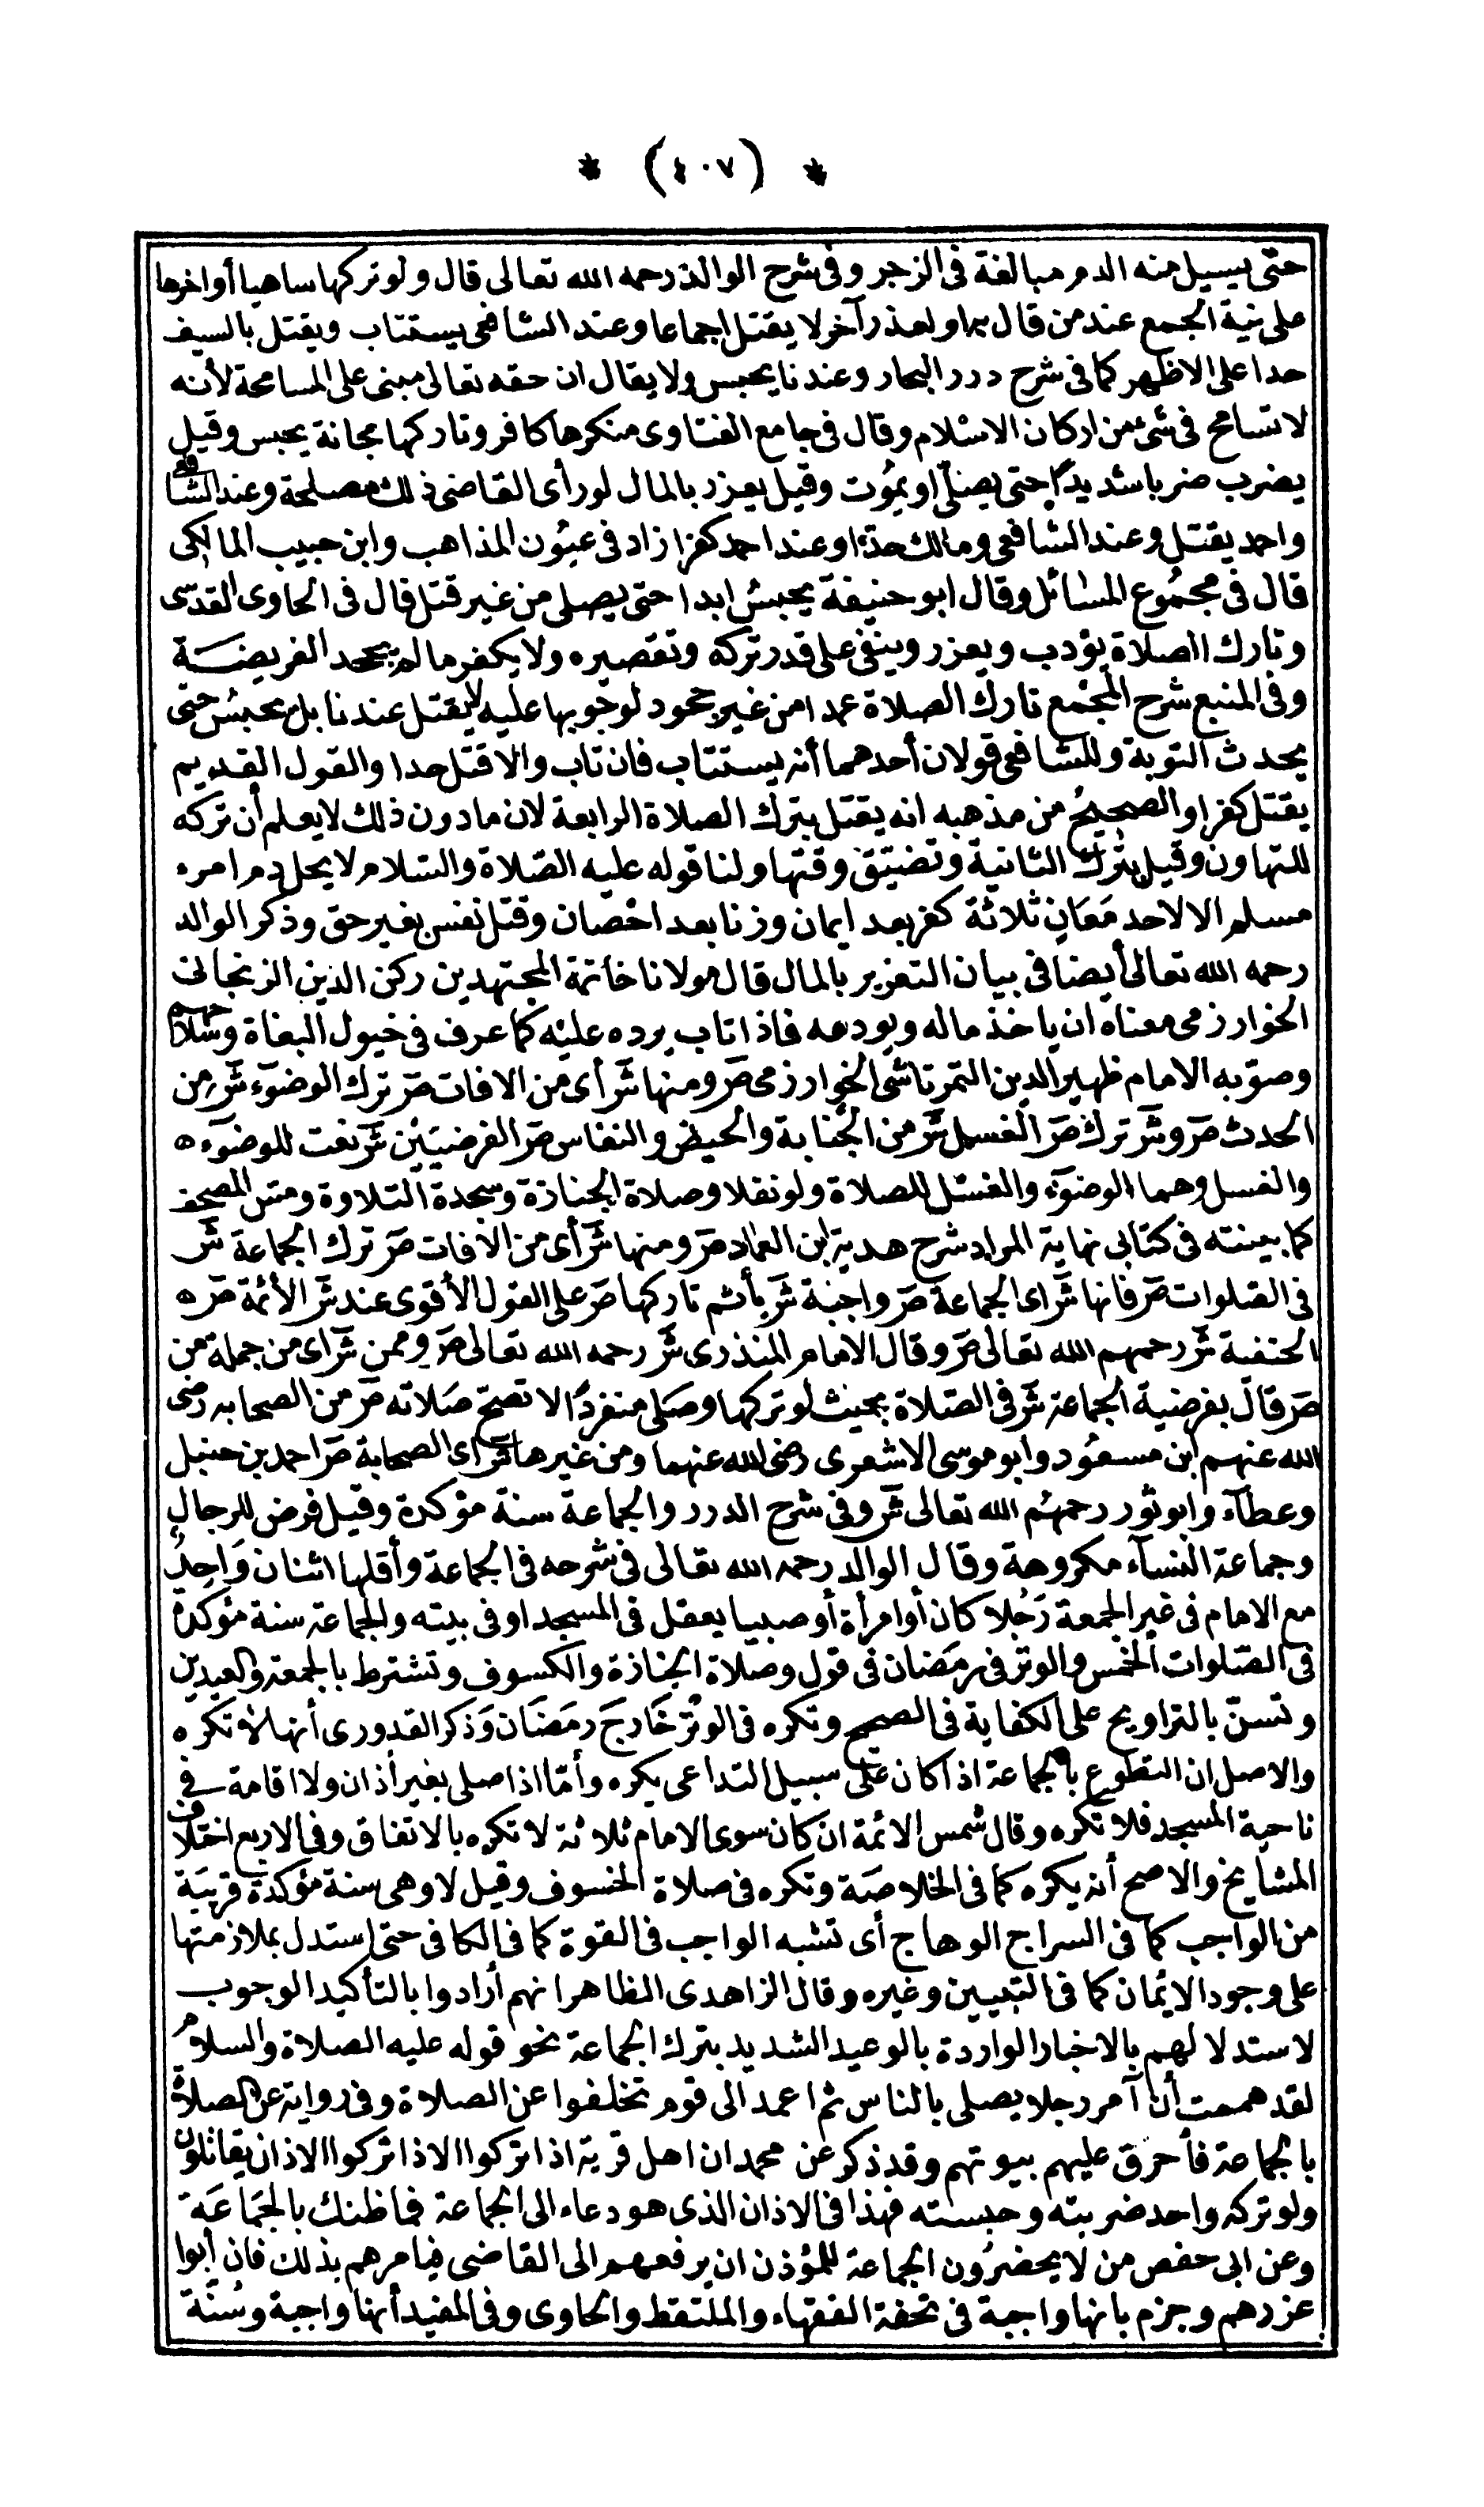 * (٤٠٧) *
حتى يسيل منه الدم مبالغة فى الزجر وفى شرح الوالد رحمه الله تعالى قال ولو تركها ساهيا أو اخرها
على نية الجمع عند من قال به او لعذر آخر لا يقتل اجماعا وعند الشافعى يستتاب ويقتل بالسيف
حدا على الاظهر كما فى شرح درر البحار وعندنا يحبس ولا يقال ان حقه تعالى مبنى على المسامحة لأنه
لا تسامح فى شئ من اركان الاسلام وقال فى جامع الفتاوى منكرها كافر وتاركها مجانة يحبس وقيل
يضرب ضربا شديدا حتى يصلى او يموت وقيل يعزر بالمال لو رأى القاضى ذلك مصلحة وعند الشافعى
واحمد يقتل وعند الشافعى ومالك حدا وعند احمد كفرا زاد فى عيون المذاهب وابن حبيب المالكى
قال فى مجموع المسائل وقال ابو حنيفة يحبس ابدا حتى يصلى من غير قتل قال فى الحاوى القدسى
وتارك الصلاة يؤدب ويعزر وينفى على قدر تركه وتقصيره ولا يكفر ما لم يجحد الفريضة
وفى المنبع شرح المجمع تارك الصلاة عمدا من غير جحود لوجوبها عليه لا يقتل عندنا بل يحبس حتى
يحدث التوبة وللشافعى قولان أحدهما أنه يستتاب فان تاب والا قتل حدا والقول القديم
يقتل كفرا والصحيح من مذهبه انه يقتل بترك الصلاة الرابعة لان ما دون ذلك لا يعلم أن تركه
للتهاون وقيل بترك الثانية وتضييق وقتها ولنا قوله عليه الصلاة والسلام لا يحل دم امره
مسلم الا لاحد معان ثلاثة كفر بعد ايمان وزنا بعد احصان وقتل نفس بغير حق وذكر الوالد
رحمه الله تعالى أيضا فى بيان التعزير بالمال قال مولانا خاتمة المجتهدين ركن الدين الزنجانى
الخوارزمى معناه ان ياخذ ماله ويودعه فاذا تاب يرده عليه كما عرف فى خيول البغاة وسلاحهم
وصوبه الامام ظهير الدين التمرتاشى الخوارزمى صر ومنها شر أى من الافات صر ترك الوضوء شر من
الحدث صر و شر ترك صر الغسل شر من الجنابة والحيض والنفاس صر الفرضيين شر نعت للوضوء ه
والغسل وهما الوضوء والغسل للصلاة ولو نفلا وصلاة الجنازة وسجدة التلاوة ومس المصحف
كما بينته فى كتابى نهاية المراد شرح هدية ابن العماد صر ومنها شر أى من الافات صر ترك الجماعة شر
فى الصلوات صر فانها شر اى الجماعة صر واجبة شر يأثم تاركها صر على القول الأقوى عند شر الأئمة صر ه
الحنفية شر رحمهم الله تعالى صر وقال الامام المنذرى شر رحمه الله تعالى صر وممن شر اى من جملة من
صر قال بفرضية الجماعة شر فى الصلاة بحيث لو تركها وصلى منفردا لا تصح صلاته صر من الصحابه رضى
الله عنهم ابن مسعود وابو موسى الاشعرى رضى الله عنهما ومن غيرها شر اى الصحابة صر احمد بن حنبل
وعطاء وابو ثور رحمهم الله تعالى شر وفى شرح الدرر والجماعة سنة مؤكدة وقيل فرض للرجال
وجماعة النساء مكروهة وقال الوالد رحمه الله تعالى فى شرحه فى الجماعة وأقلها اثنان واحد
مع الامام فى غير الجمعة رجلا كان أو امرأة أو صبيا يعقل فى المسجد او فى بيته والجماعة سنة مؤكدة
فى الصلوات الخمس والوتر فى رمضان فى قول وصلاة الجنازة والكسوف وتشترط بالجمعة والعيدين
وتسن بالتراويح على الكفاية فى الصحيح وتكره فى الوتر خارج رمضان وذكر القدورى أنها لا تكره
والاصل ان التطوع بالجماعة اذا كان على سبيل التداعى يكره وأما اذا صلى بغير أذان ولا اقامة فى
ناحية المسجد فلا تكره وقال شمس الائمة ان كان سوى الامام ثلاثة لا تكره بالاتفاق وفى الاربع اختلاف
المشايخ والاصح أنه يكره كما فى الخلاصة وتكره فى صلاة الخسوف وقيل لا وهى سنة مؤكدة قريبة
من الواجب كما فى السراج الوهاج أى تشبه الواجب فى القوة كما فى الكافى حتى استدل بملازمتها
على وجود الايمان كما فى التبيين وغيره وقال الزاهدى الظاهر انهم أرادوا بالتأكيد الوجوب
لاستدلالهم بالاخبار الواردة بالوعيد الشديد بترك الجماعة نحو قوله عليه الصلاة والسلام
لقد هممت أن آمر رجلا يصلى بالناس ثم اعمد الى قوم تخلفوا عن الصلاة وفى رواية عن الصلاة
بالجماعة فأحرق عليهم بيوتهم وقد ذكر عن محمد ان اهل قرية اذا تركوا الاذا تركوا الاذان يقاتلون
ولو تركه واحد ضربته وحبسته فهذا فى الاذان الذى هو دعاء الى الجماعة فما ظنك بالجماعة
وعن ابى حفص من لا يحضرون الجماعة للمؤذن ان يرفعهم الى القاضى فيامرهم بذلك فان أبوا
عزرهم وجزم بانها واجبة فى تحفة الفقهاء والملتقط والحاوى وفى المفيد أنها واجبة وسنة